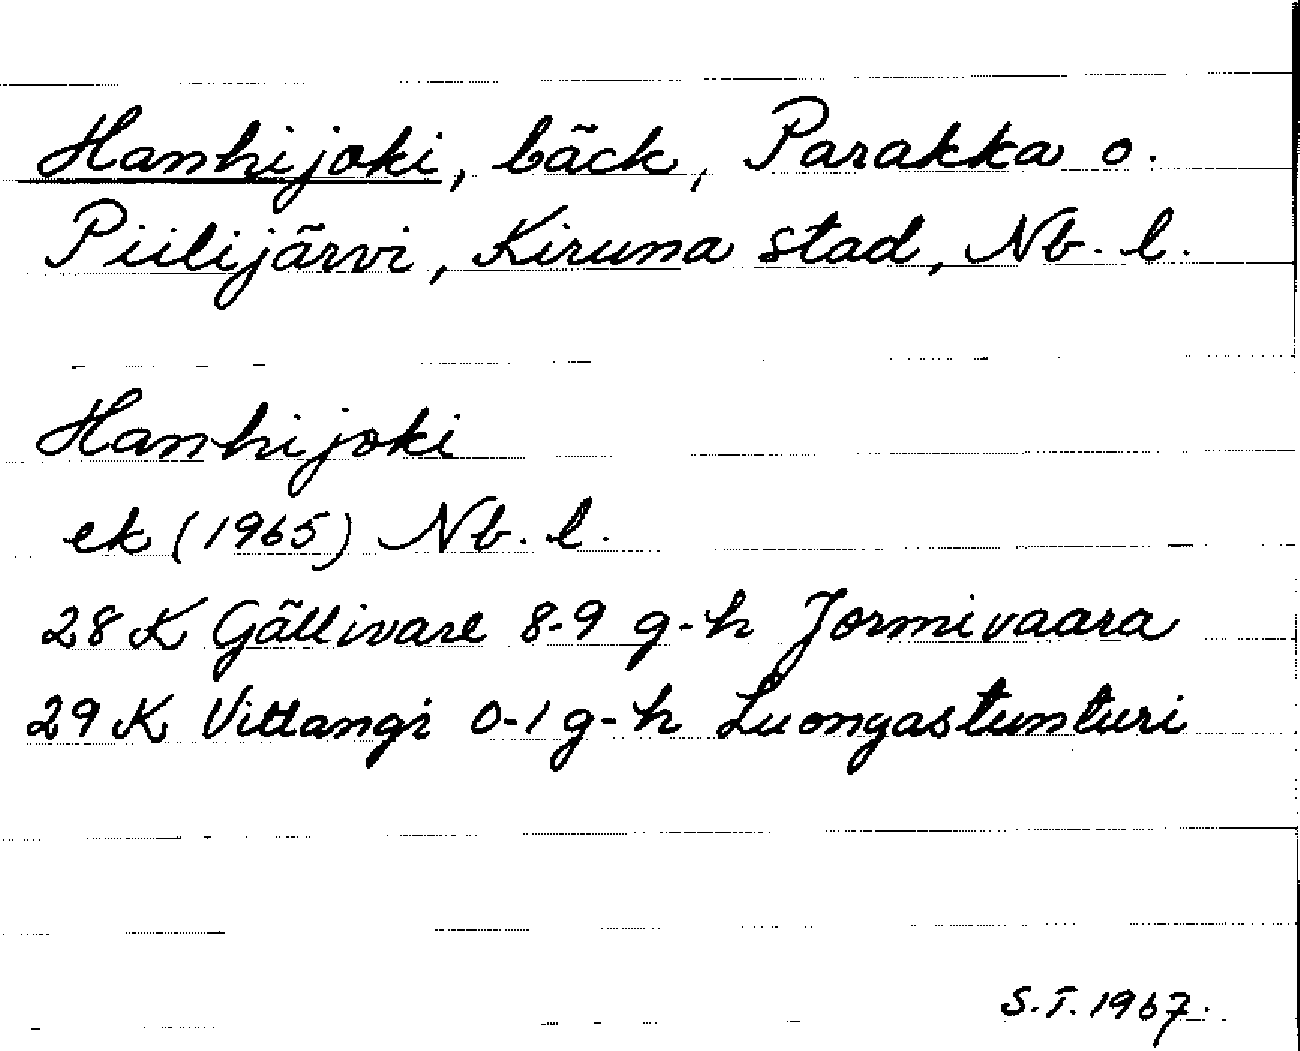 Hanhijoki, bäck, Parakka o.
Piilijärvi, Kiruna stad, Nb. l.
Hanhijoki
ek (1965) Nb. l.
28 K Gällivare 8-9 g-h Jormivaara
29 K Vittangi 0-1 g-h Luongastunturi
S.T. 1967.